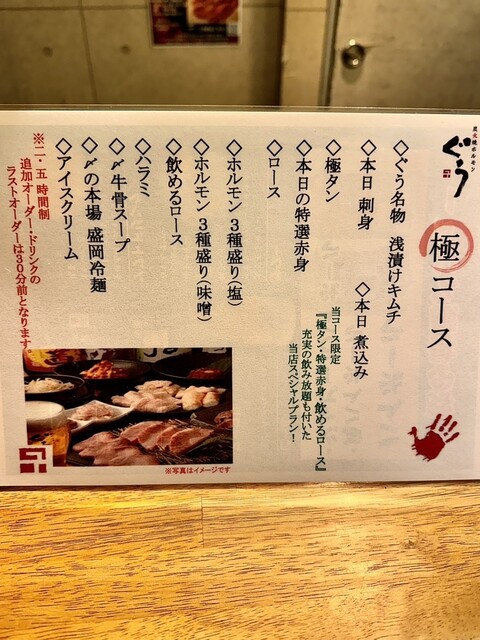 炭火焼ホルモン
ぐう
極コース
◇ぐう名物 浅漬けキムチ
◇本日 刺身 ◇本日 煮込み
◇極タン
◇本日の特選赤身
◇ロース
当コース限定
『極タン・特選赤身・飲めるロース』
充実の飲み放題も付いた
当店スペシャルプラン！
◇ホルモン３種盛り(塩)
◇ホルモン３種盛り(味噌)
◇飲めるロース
◇ハラミ
◇〆牛骨スープ
◇〆の本場 盛岡冷麺
◇アイスクリーム
※二・五時間制
追加オーダー・ドリンクの
ラストオーダーは３０分前となります
※写真はイメージです